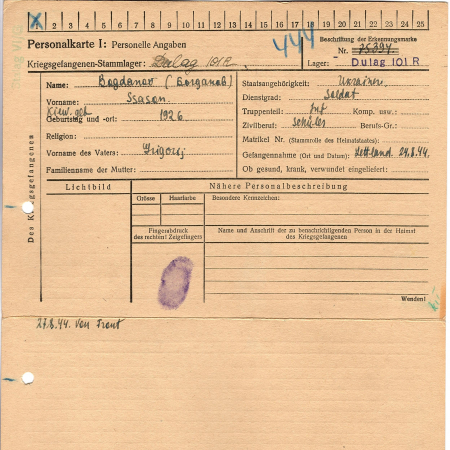 X 2 3 4 5 6 7 8 9 10 11 12 13 14 15 16 17 18 19 20 21 22 23 24 25
Personalkarte I: Personelle Angaben
Kriegsgefangenen-Stammlager: Dulag 101 R.
444
Beschriftung der Erkennungsmarke
Nr. 75394
Lager: Dulag 101 R
Des Kriegsgefangenen
Name: Bogdanov (Богданов)
Vorname: Ssason
Kiew. geb
Geburtstag und -ort: 1926
Religion:
Vorname des Vaters: Grigorij
Familienname der Mutter:
Staatsangehörigkeit: Ukrainer
Dienstgrad: Soldat
Truppenteil: Inf Komp. usw.:
Zivilberuf: Schüler Berufs-Gr.:
Matrikel Nr. (Stammrolle des Heimatstaates):
Gefangennahme (Ort und Datum): Lettland 24.8.44.
Ob gesund, krank, verwundet eingeliefert:
Lichtbild
Nähere Personalbeschreibung
Grösse Haarfarbe Besondere Kennzeichen:
Fingerabdruck
des rechten! Zeigefingers
Name und Anschrift der zu benachrichtigenden Person in der Heimat
des Kriegsgefangenen
Wenden!
27.8.44. von Front